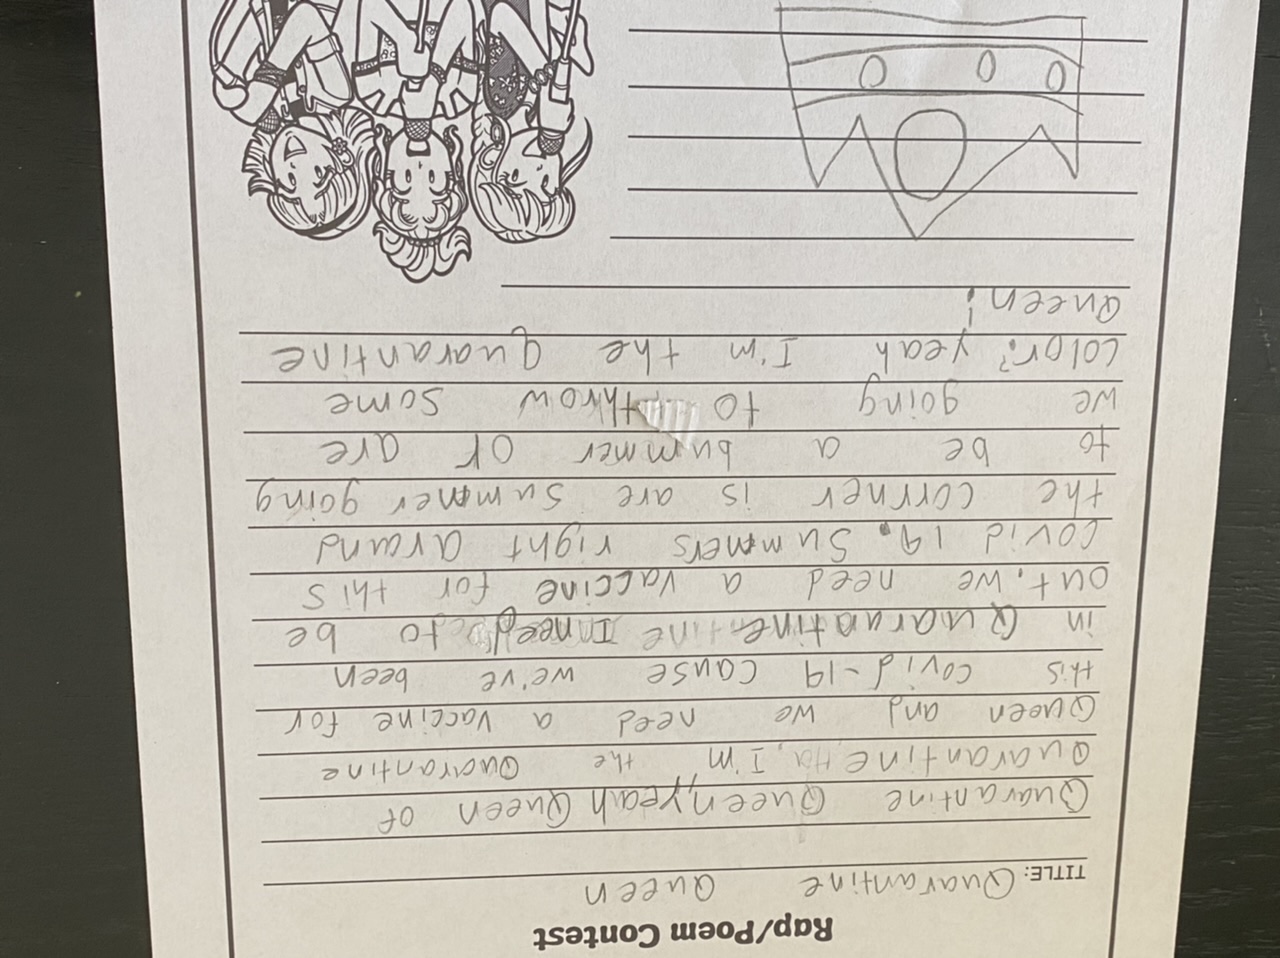 Rap/Poem Contest
TITLE: Quarantine Queen
Quarantine Queen, yeah Queen of
Quarantine, Ha, I'm the Quarantine
Queen and we need a vaccine for
this covid-19 cause we've been
in Quarantine I need to be
out. we need a vaccine for this
covid 19. Summers right around
the corrner is are summer going
to be a bummer or are
we going to throw some
color? yeah I'm the quarantine
Queen!